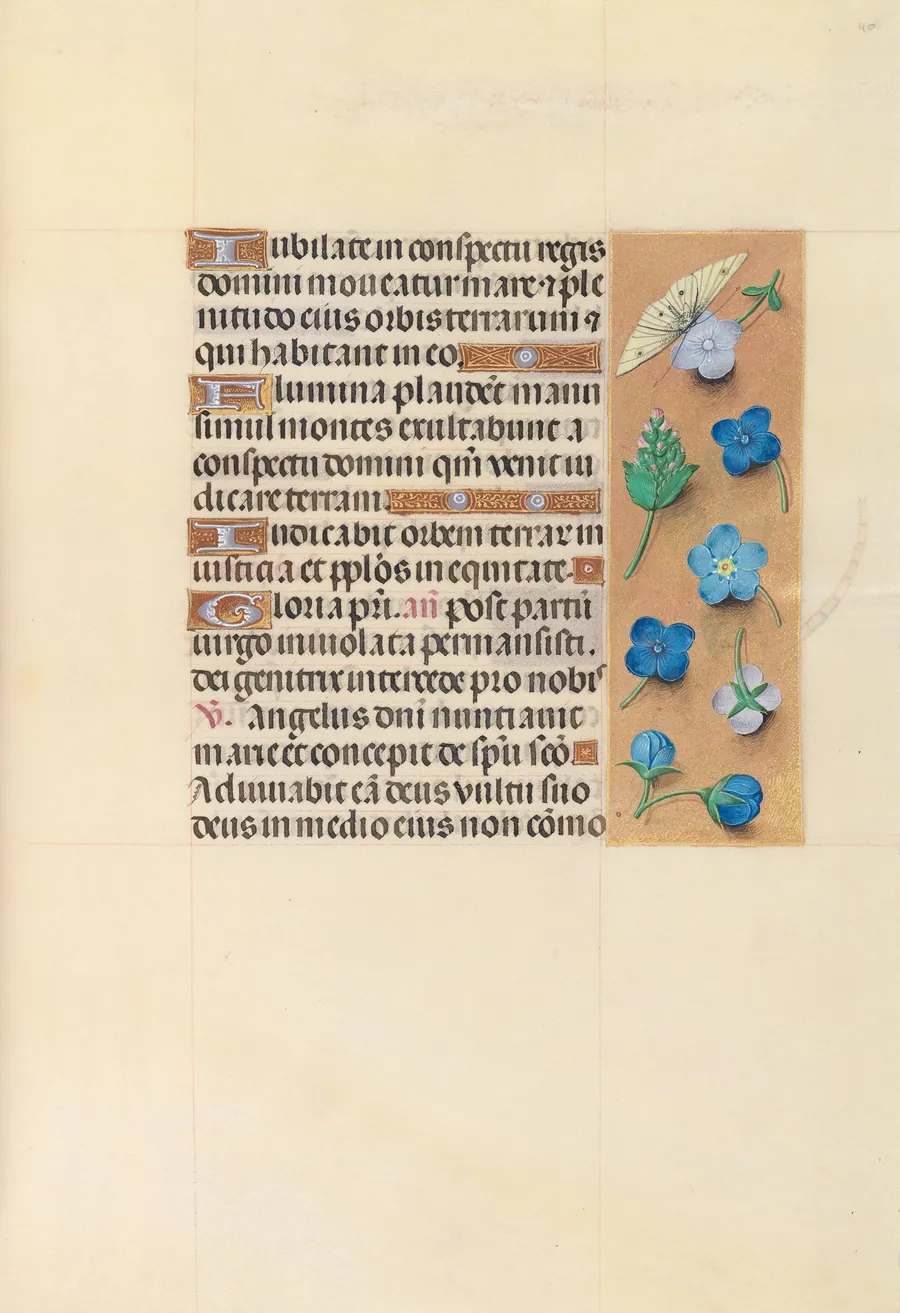 40
Iubilate in conspectu regis
domini moueatur mare ⁊ ple
nitudo eius orbis terrarum ⁊
qui habitant in eo.
Flumina plaudēt manu
simul montes exultabunt a
conspectu domini qm̄ venit iu
dicare terram.
Iudicabit orbem terrar in
iusticia et pplōs in equitate.
Gloria pri. an̄ post partū
uirgo inuiolata permansisti.
dei genitrix intercede pro nobis
V. Angelus dn̄i nuntiauit
marie et concepit de spū scō.
Adiuuabit eā deus vultu suo
deus in medio eius non cōmo